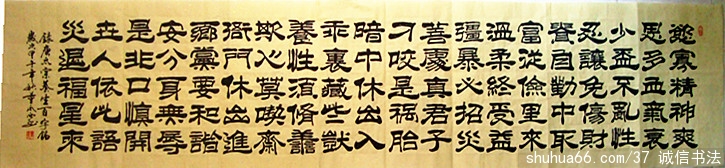 慾寡精神爽
思多血氣衰
少盃不亂性
忍讓免傷財
貴自勤中取
富從儉里來
溫柔終受益
暴必招災
善處真君子
刁咬是禍胎
暗中休出入
乖裏藏些獃
養性須脩善
欺心莫喫齋
衙門休出進
鄉黨要和諧
安分身無辱
是非口慎開
世人依此語
災退福星來
錄唐太宗養生百字銘
歲次甲午年秋
shuhua66.com/37 诚信书法